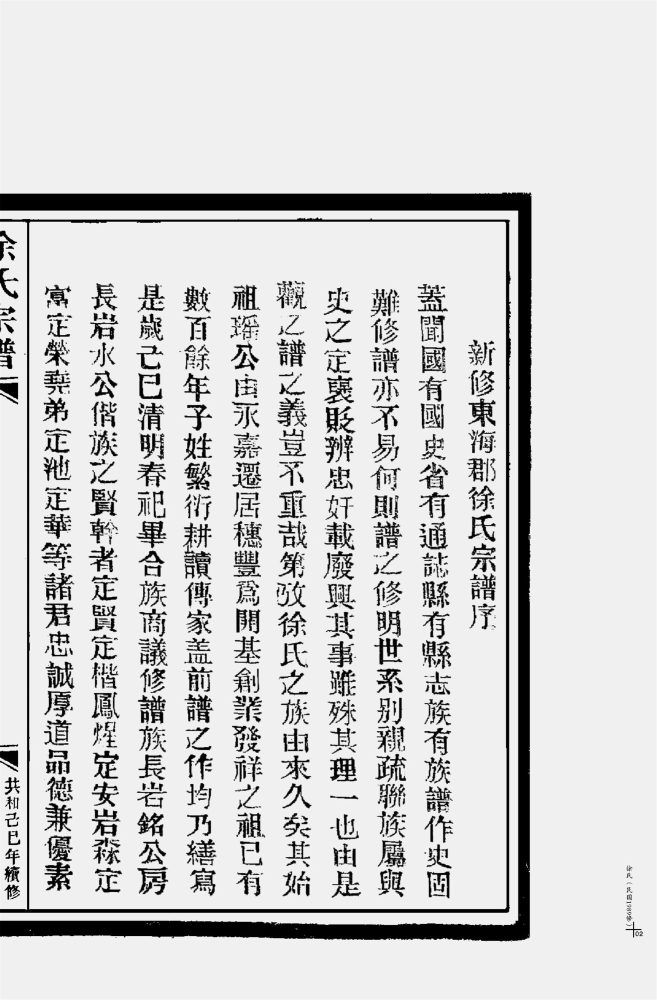 新修東海郡徐氏宗譜序
蓋聞國有國史省有通誌縣有縣志族有族譜作史固
難修譜亦不易何則譜之修明世系别親疏聯族屬與
史之定襃貶辨忠奸載廢興其事雖殊其理一也由是
觀之譜之義豈不重哉第攷徐氏之族由來久矣其始
祖瑶公由永嘉遷居穗豐爲開基創業發祥之祖已有
數百餘年子姓繁衍耕讀傳家盖前譜之作均乃繕寫
是歲己巳清明春祀畢合族商議修譜族長岩銘公房
長岩水公偕族之賢幹者定賢定楷鳳煋定安岩森定
富定榮堯弟定池定華等諸君忠誠厚道品德兼優素
徐氏宗譜
共和己巳年續修
徐氏（民國1989修）
02